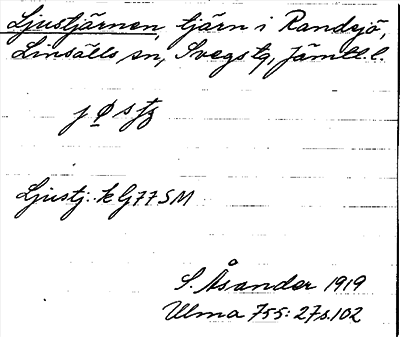 Ljustjärnen tjärn i Randsjö,
Linsälls sn, Svegs tg, Jämtl. l.
Ljustj: k G77SM
S. Åsander 1919
Ulma 755: 27 s. 102